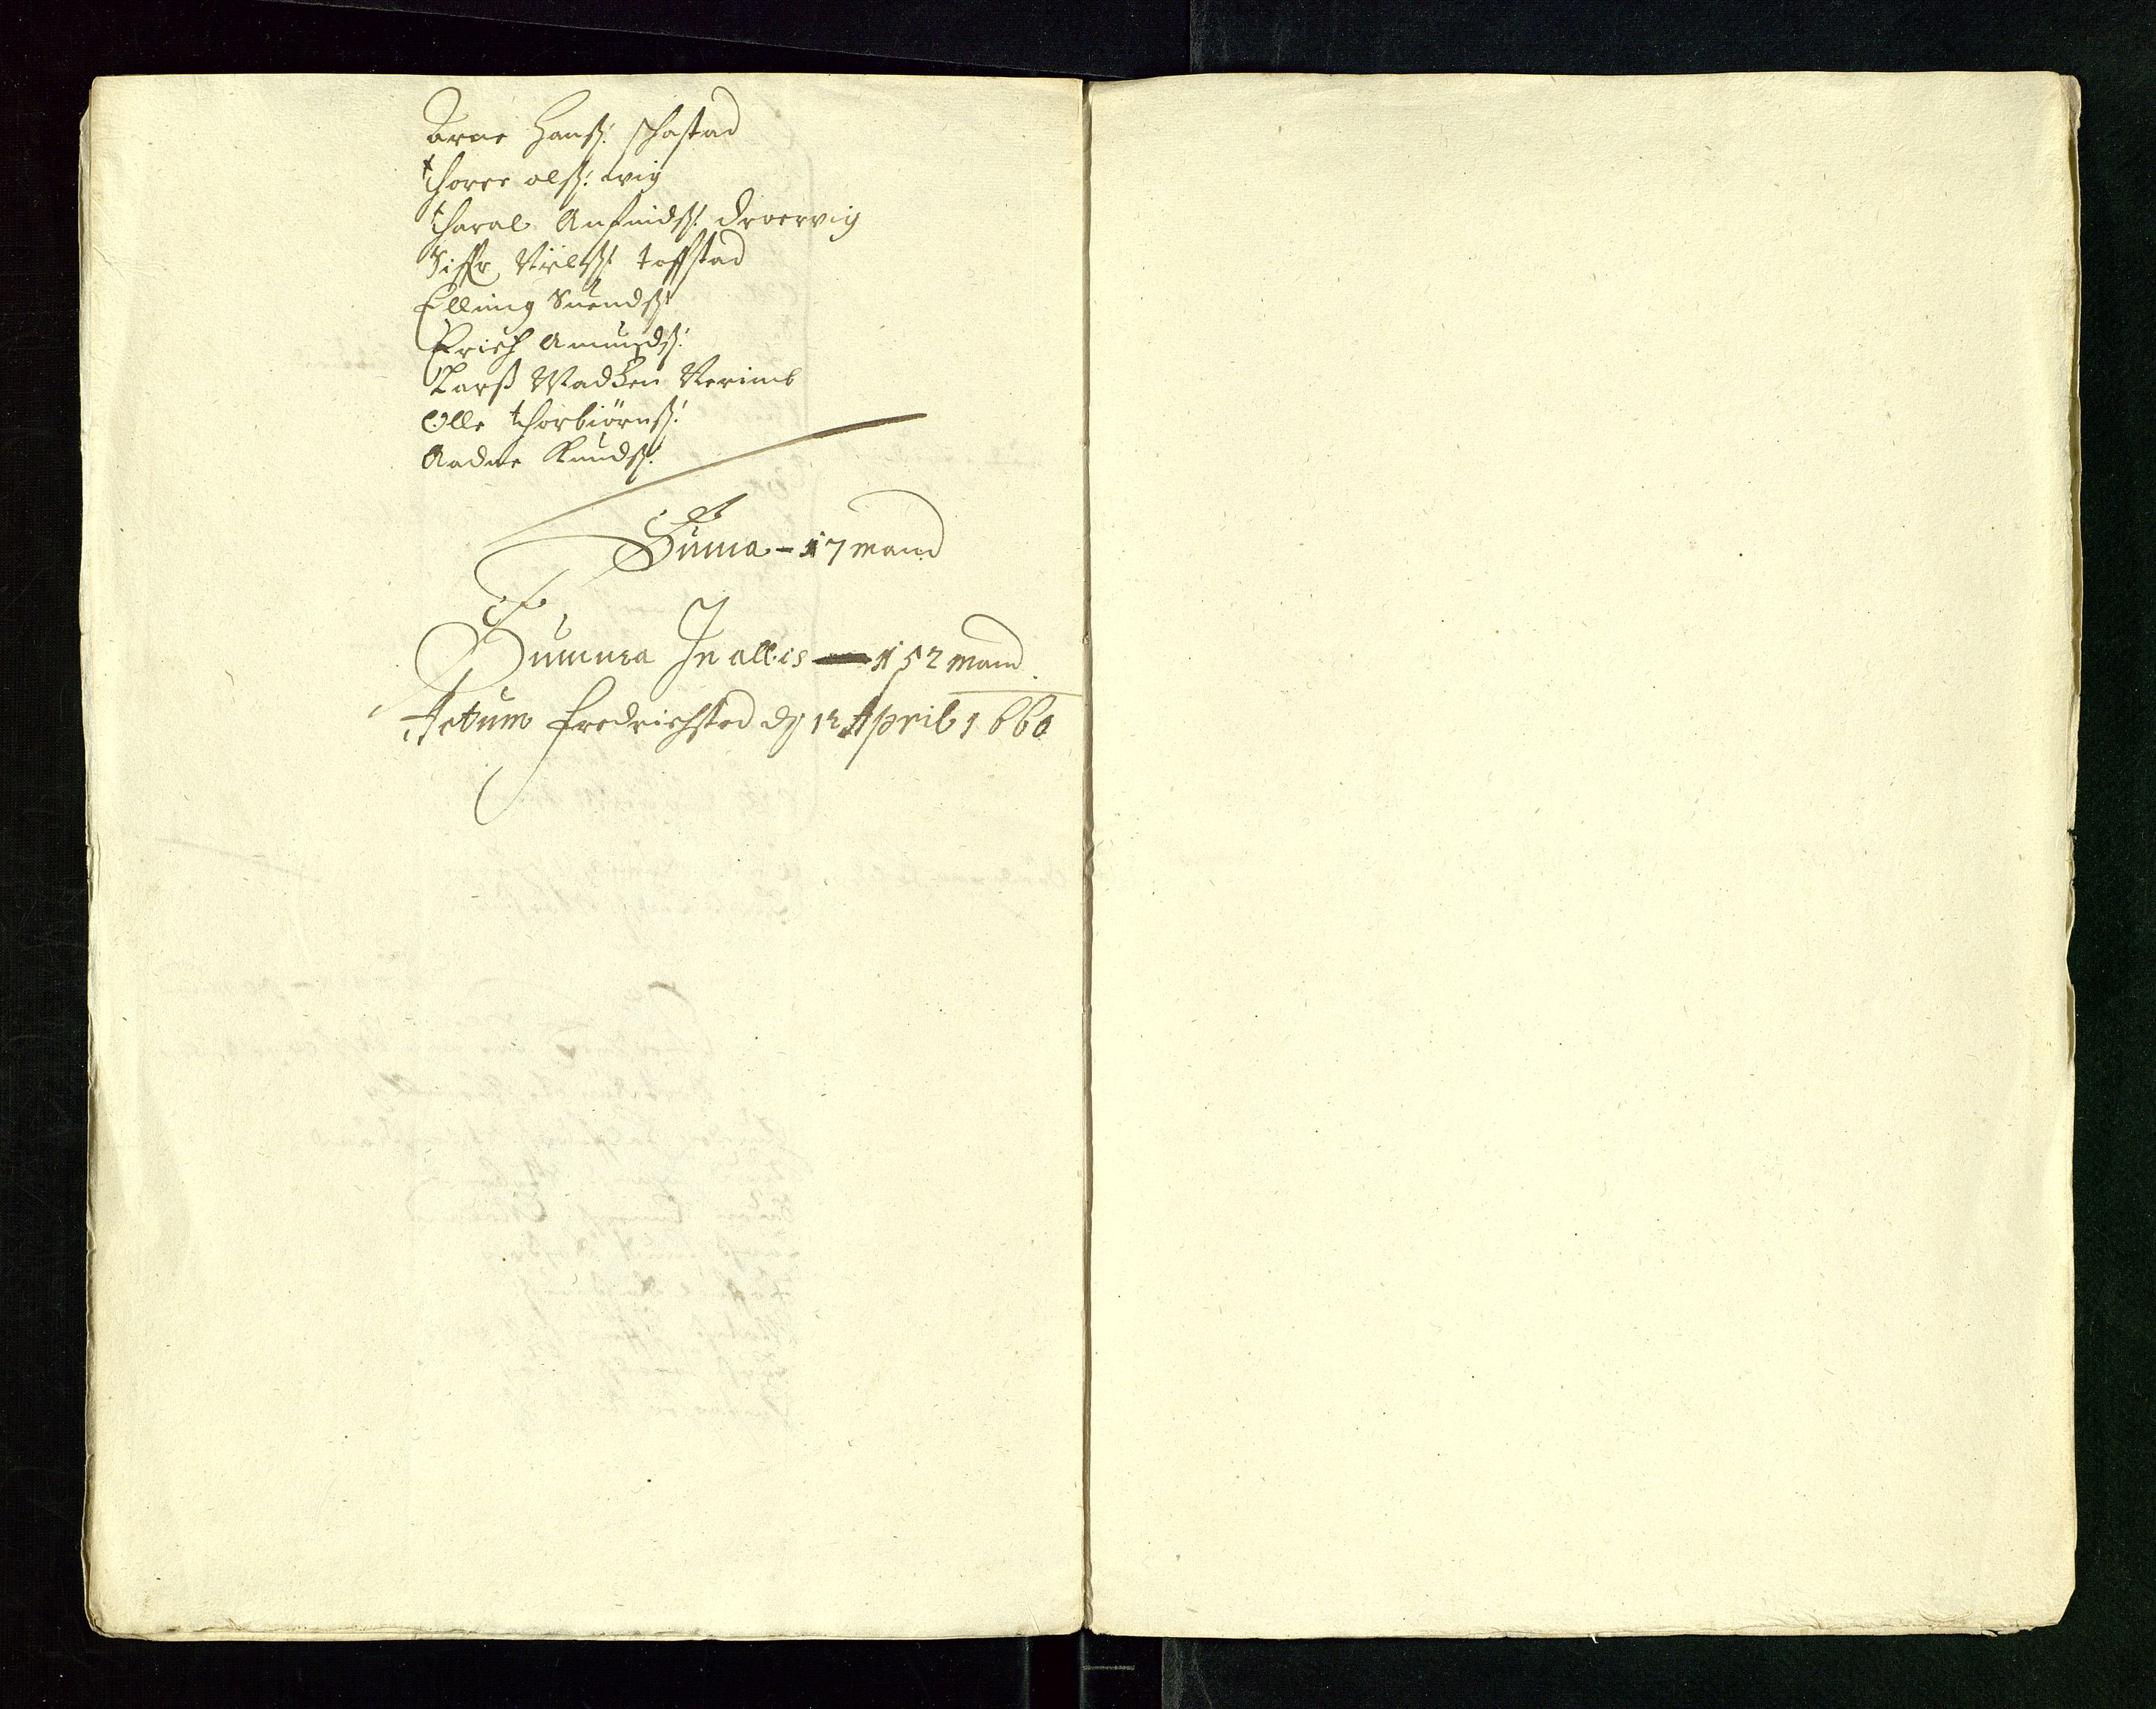 Arne Hanß: schastad
thorer olß: wig
tharal Anfindß: droervig
Siffr Nielß: toffstad
Elling Suendß:
Erich Amundß:
Larß Madßen Verimb
Olle thorbiörnß:
Aadne Knudß:
Suma - 17 mand
Summa In allis — 152 mand.
Actum fredrichstad dj 12 April 1660